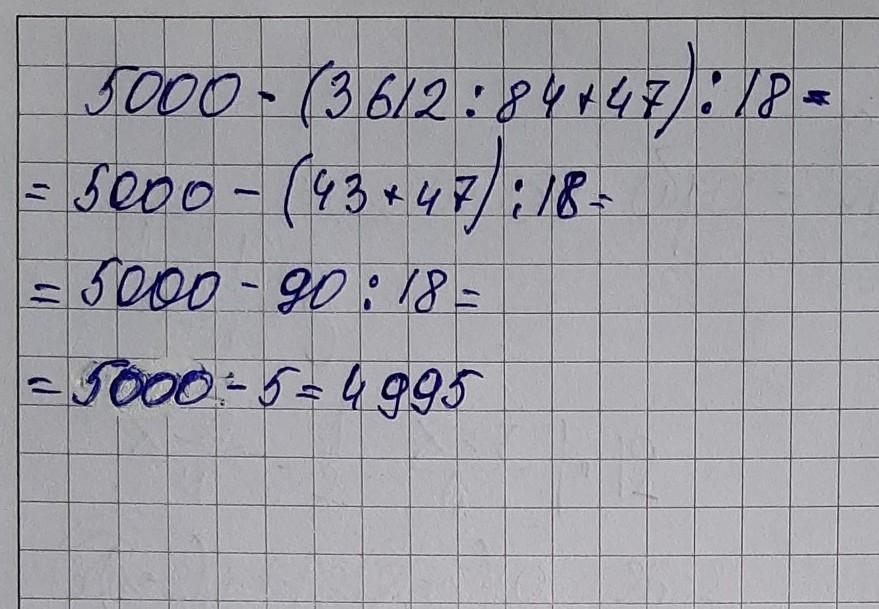 5000 - (3612 : 84 + 47) : 18 =
= 5000 - (43 + 47) : 18 =
= 5000 - 90 : 18 =
= 5000 - 5 = 4995